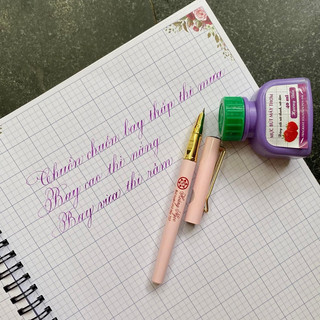 Chuồn chuồn bay thấp thì mưa
Bay cao thì nắng
Bay vừa thì râm
MỰC BÚT MÁY THƠM